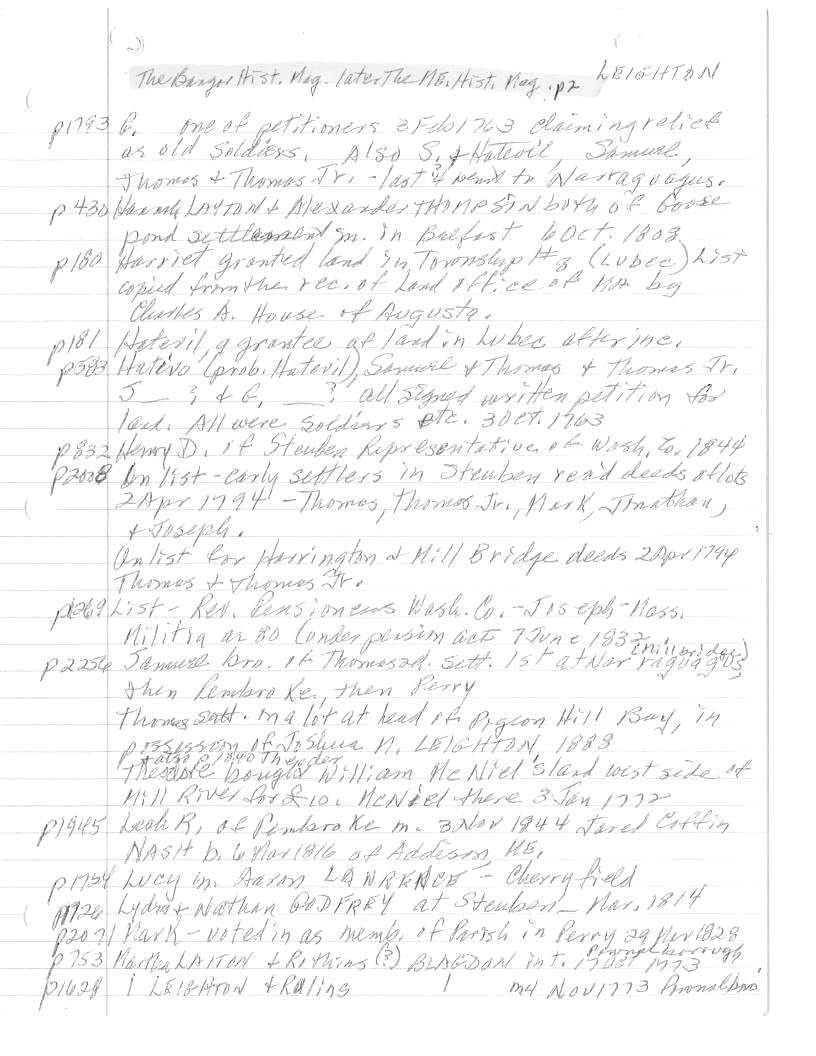 The Bangor Hist. Mag. later The ME. Hist. Mag. p2 LEIGHTON
p1793 G. one of petitioners 3 Feb 1763 claiming relief
as old Soldiers. Also S. & Hatevil, Samuel,
Thomas & Thomas Jr. - last 4 went to Narraguagus.
p 430 Hannah LAYTON & Alexander THOMPSON both of Goose
pond settlement m. in Belfast 6 Oct. 1808
p180 Harriet granted land in Township #8 (Lubec) List
copied from the rec. of Land Office of MA by
Charles A. House of Augusta.
p181 Hatevil, a grantee of land in Lubec after inc.
p583 Hatevo (prob. Hatevil), Samuel & Thomas & Thomas Jr.
J__ ? & G, __? all signed written petition for
land. All were soldiers etc. 3 Oct. 1763
p832 Henry D. of Steuben Representative of Wash. Co. 1844
p2028 On list - early settlers in Steuben rec'd deeds of lots
2 Apr 1794 - Thomas, Thomas Jr., Mark, Jonathan,
& Joseph.
On list for Harrington & Mill Bridge deeds 2 Apr 1794
Thomas & Thomas Jr.
p1269 List - Rev. Pensioners Wash. Co. - Joseph - Mass.
Militia ae 80 (under pension act 7 June 1832.
p2256 Samuel bro. of Thomas ad. sett. 1st at Narraguagus, (Millbridge)
then Pembroke, then Perry
Thomas sett. on a lot at head of Pigeon Hill Bay, in
possession of Joshua N. LEIGHTON, 1888
& also p 1840 Theoder
Theodore bought William McNiel's land west side of
Mill River for £10. McNiel there 3 Jan 1772
p1945 Leah R. of Pembroke m. 3 Nov 1844 Jared Coffin
NASH b. 6 Mar 1816 of Addison, ME.
p1754 Lucy m. Aaron LAWRENCE - Cherryfield
p1726 Lydia & Nathan GODFREY at Steuben - Mar. 1814
p2071 Mark - voted in as memb. of Parish in Perry 29 Mar 1828
p753 Martha LAITON & (?) BLAGDON int. 17 Oct 1773 Pownalborough
p1628 LEIGHTON & m4 Nov 1773